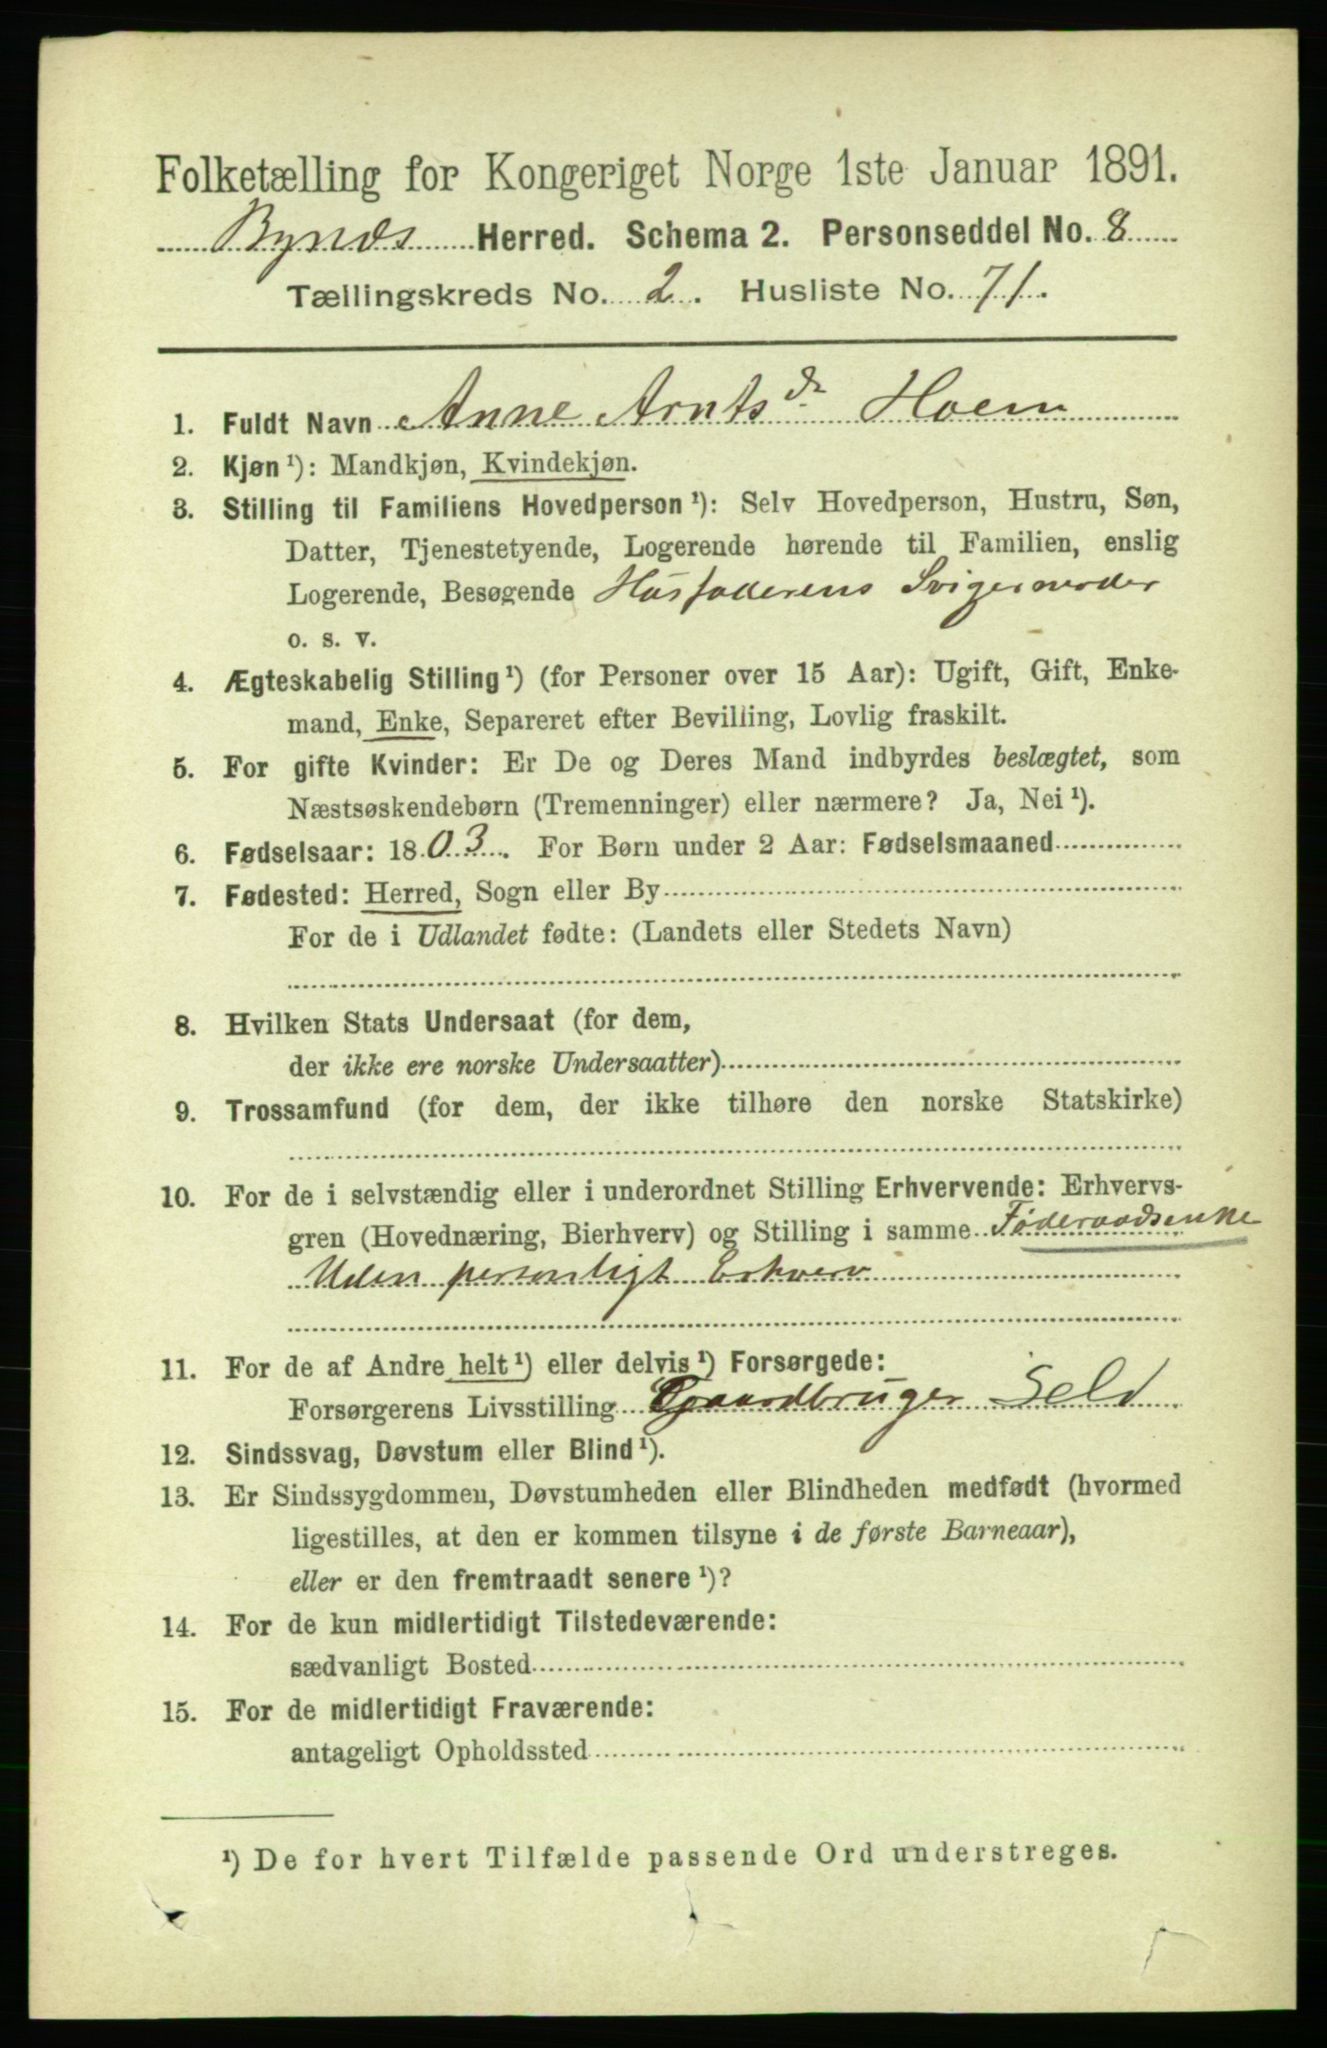 Folketælling for Kongeriget Norge 1ste Januar 1891.
Bynes Herred. Schema 2. Personseddel No. 8
Tællingskreds No. 2. Husliste No. 71.
1. Fuldt Navn Anne Arntsdr Hoem
2. Kjøn ¹): Mandkjøn, Kvindekjøn.
3. Stilling til Familiens Hovedperson ¹): Selv Hovedperson, Hustru, Søn,
Datter, Tjenestetyende, Logerende hørende til Familien, enslig
Logerende, Besøgende Husfaderens Svigermoder
o. s. v.
4. Ægteskabelig Stilling ¹) (for Personer over 15 Aar): Ugift, Gift, Enke-
mand, Enke, Separeret efter Bevilling, Lovlig fraskilt.
5. For gifte Kvinder: Er De og Deres Mand indbyrdes beslægtet, som
Næstsøskendebørn (Tremenninger) eller nærmere? Ja, Nei ¹).
6. Fødselsaar: 1803. For Børn under 2 Aar: Fødselsmaaned
7. Fødested: Herred, Sogn eller By
For de i Udlandet fødte: (Landets eller Stedets Navn)
8. Hvilken Stats Undersaat (for dem,
der ikke ere norske Undersaatter)
9. Trossamfund (for dem, der ikke tilhøre den norske Statskirke)
10. For de i selvstændig eller i underordnet Stilling Erhvervende: Erhvervs-
gren (Hovednæring, Bierhverv) og Stilling i samme Føderaadsenke
Uden personligt Erhverv
11. For de af Andre helt ¹) eller delvis ¹) Forsørgede:
Forsørgerens Livsstilling Gaardbruger Selv
12. Sindssvag, Døvstum eller Blind ¹).
13. Er Sindssygdommen, Døvstumheden eller Blindheden medfødt (hvormed
ligestilles, at den er kommen tilsyne i de første Barneaar),
eller er den fremtraadt senere ¹)?
14. For de kun midlertidigt Tilstedeværende:
sædvanligt Bosted
15. For de midlertidigt Fraværende:
antageligt Opholdssted
¹) De for hvert Tilfælde passende Ord understreges.